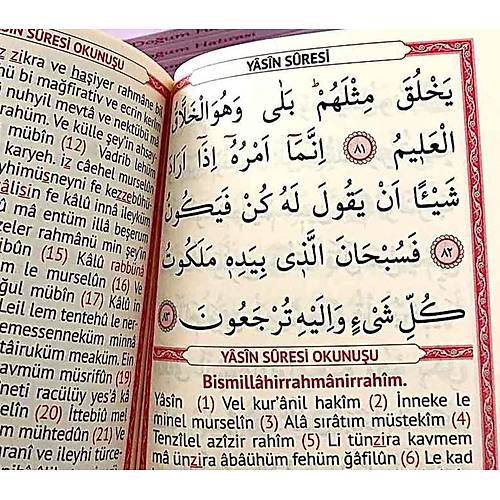 Doğum
Doğum Hatırası
SİN SÛRESİ OKUNUŞU
zikra ve haşiyer rahmâne
bi mağfirativ ve ecrin
nuhyil mevtâ ve nektübü mâ
Ve külle şey'in ahsay-
mübîn (12) Vadrib lehüm
karyeh. iz câehel murselûn
fe kezzebû
fe kâlû innâ ileyküm
mâ entüm illâ beşerum
rahmânu min şey'in
(15) Kâlû rabbünâ
le murselûn (16) Ve
mübîn (17) Kâlû in
Leil lem tentehû le ner-
yemessenneküm minnâ
tâiruküm meaküm. Ein
kavmüm müsrifûn (19)
racülüy yes'â kâ
(20) İttebiû mel
mühtedûn (21) Ve
ve ileyhi türce-
YÂSÎN SÛRESİ
يَخْلُقَ مِثْلَهُمْ بَلٰى وَهُوَ الْخَلَّاقُ
الْعَلٖيمُ ٨١ اِنَّمَٓا اَمْرُهُٓ اِذَٓا اَرَادَ
شَيْـًٔا اَنْ يَقُولَ لَهُ كُنْ فَيَكُونُ
٨٢ فَسُبْحَانَ الَّذٖي بِيَدِهٖ مَلَكُوتُ
كُلِّ شَيْءٍ وَاِلَيْهِ تُرْجَعُونَ ٨٣
YÂSÎN SÛRESİ OKUNUŞU
Bismillâhirrahmânirrahîm.
Yâsîn (1) Vel kur'ânil hakîm (2) İnneke le
minel murselîn (3) Alâ sırâtım müstekîm (4)
Tenzîlel azîzir rahîm (5) Li tünzira kavmem
mâ ünzira âbâühüm fehüm ğâfilûn (6) Le kad